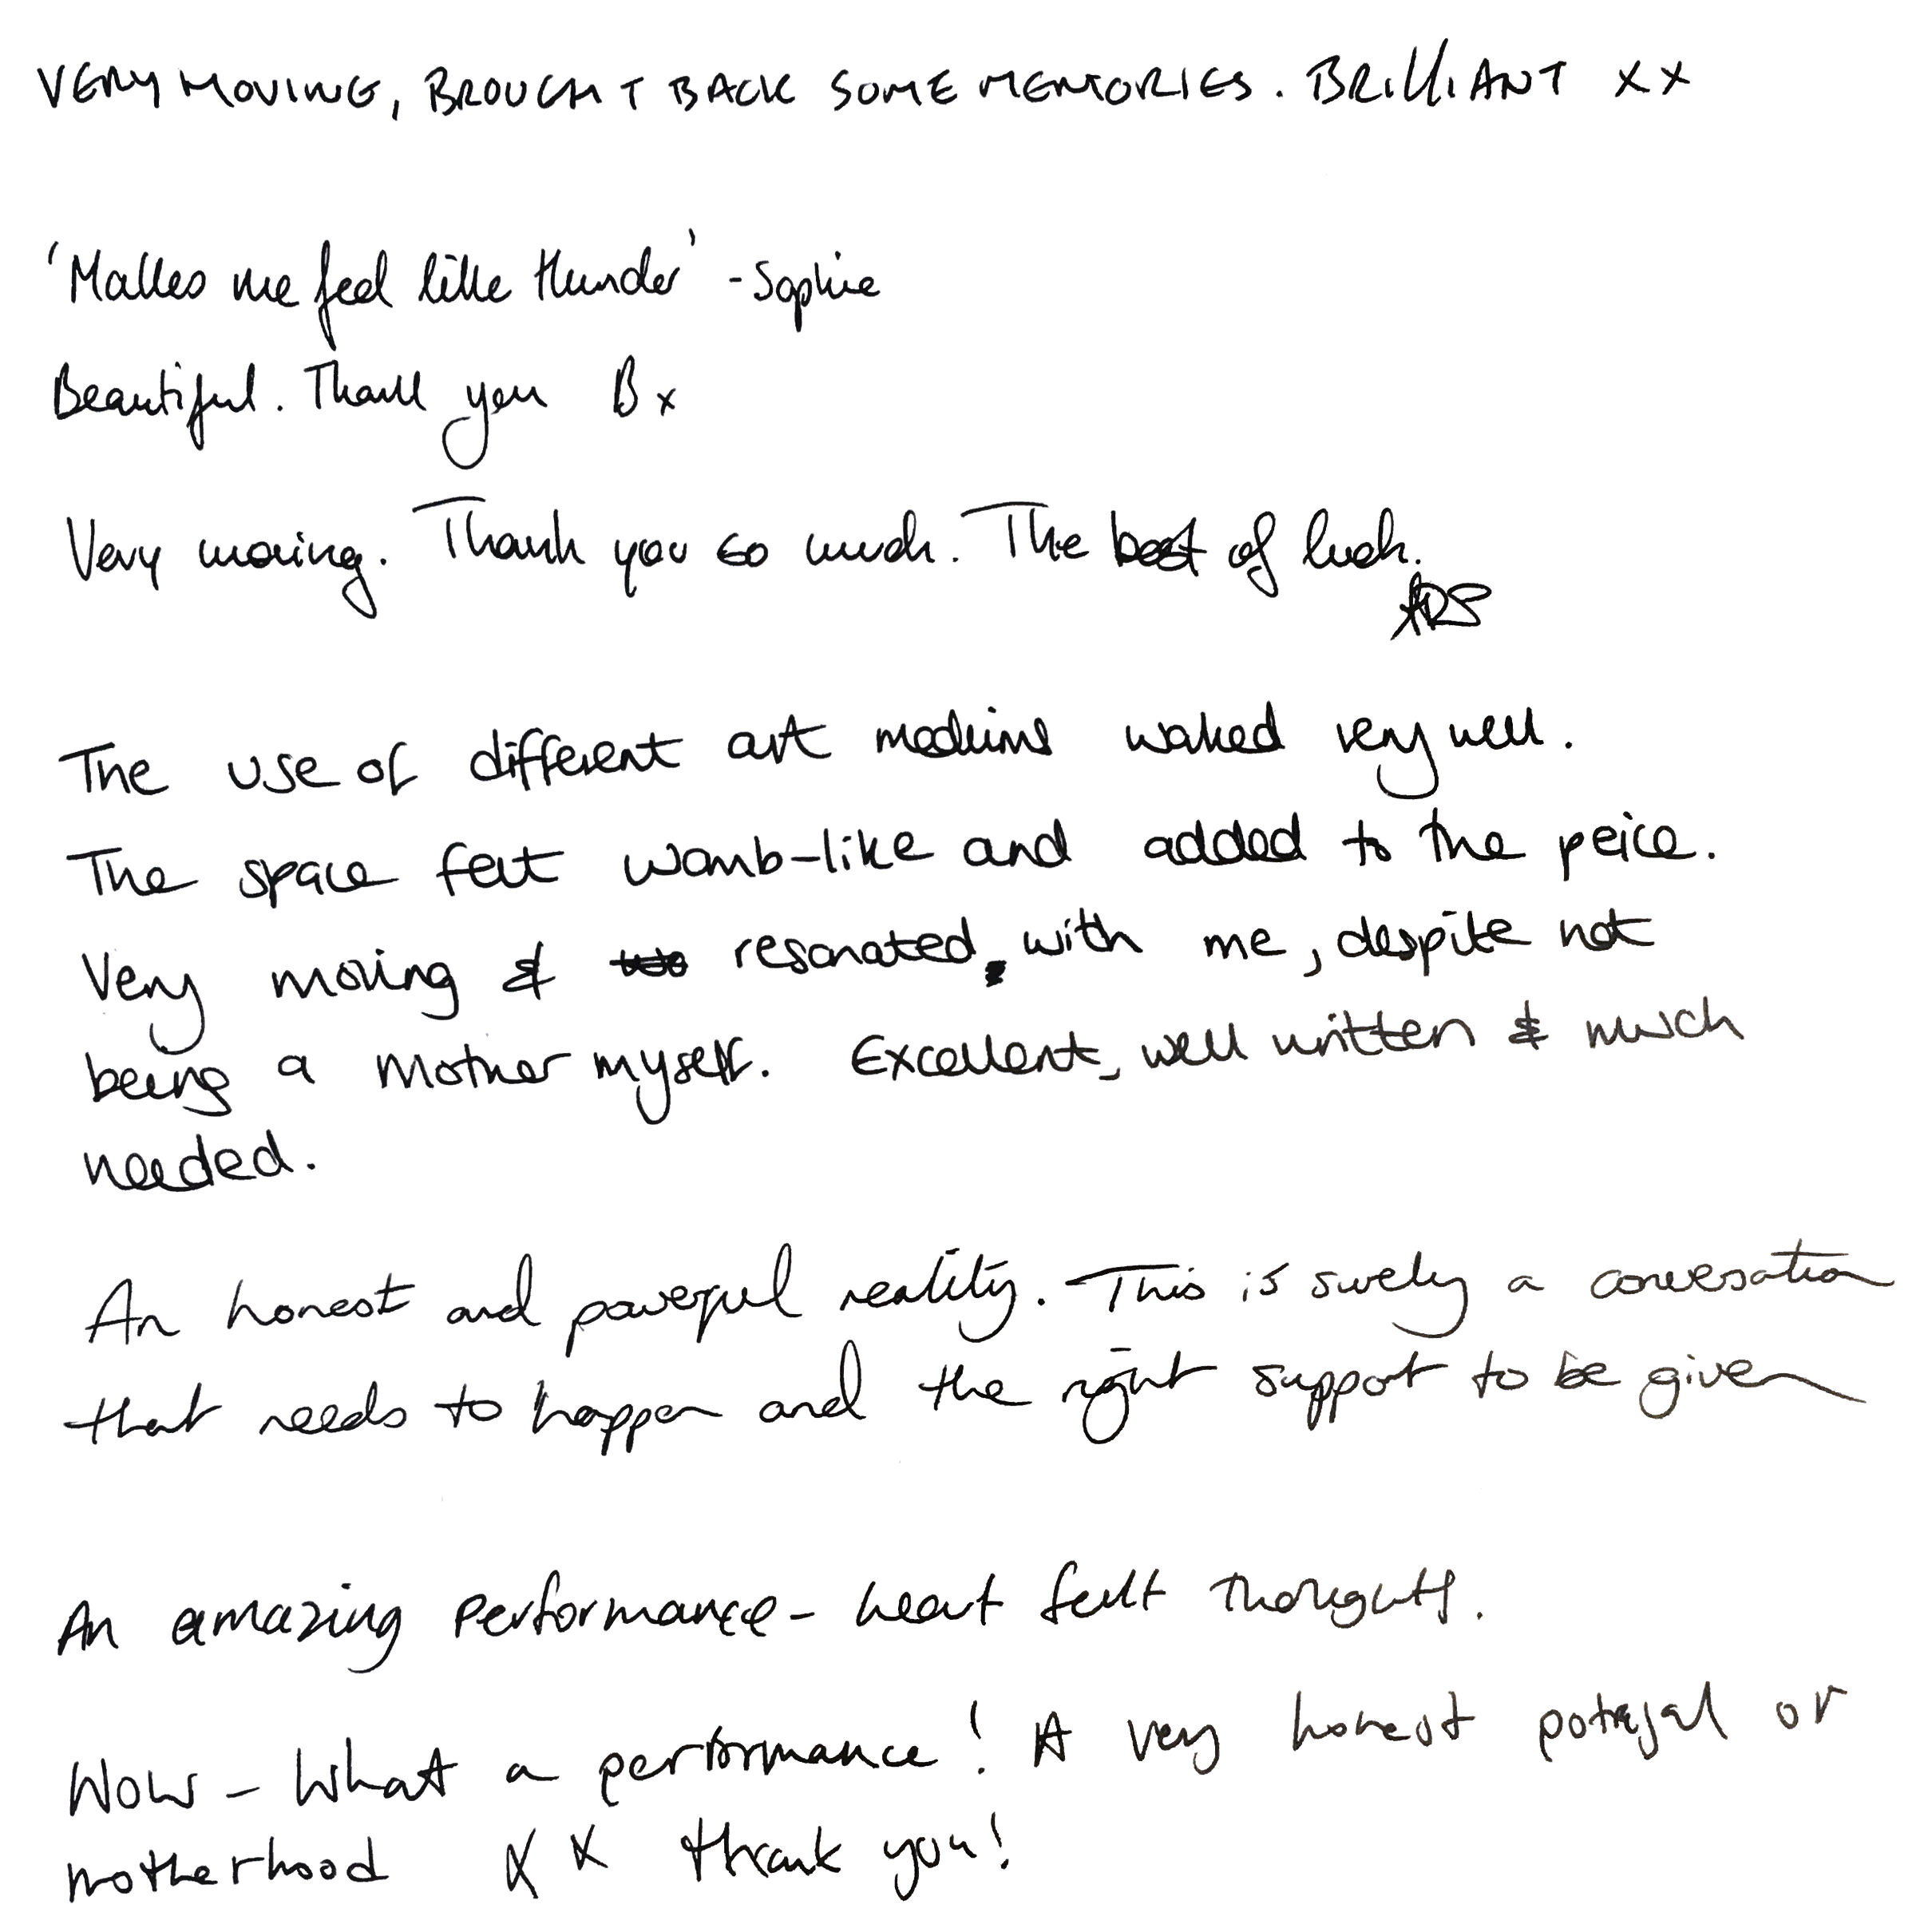 VERY MOVING, BROUGHT BACK SOME MEMORIES. BRILLIANT XX
'Makes me feel like thunder' - Sophie
Beautiful. Thank you B x
Very moving. Thank you so much. The best of luck.
The use of different art mediums worked very well.
The space felt womb-like and added to the peice.
Very moving & resonated with me, despite not
being a Mother myself. Excellent, well written & much
needed.
An honest and powerful reality. This is surely a conversation
that needs to happen and the right support to be given
An amazing performance - heart felt thoughts.
Wow - What a performance! A very honest potrayal of
motherhood X X thank you!